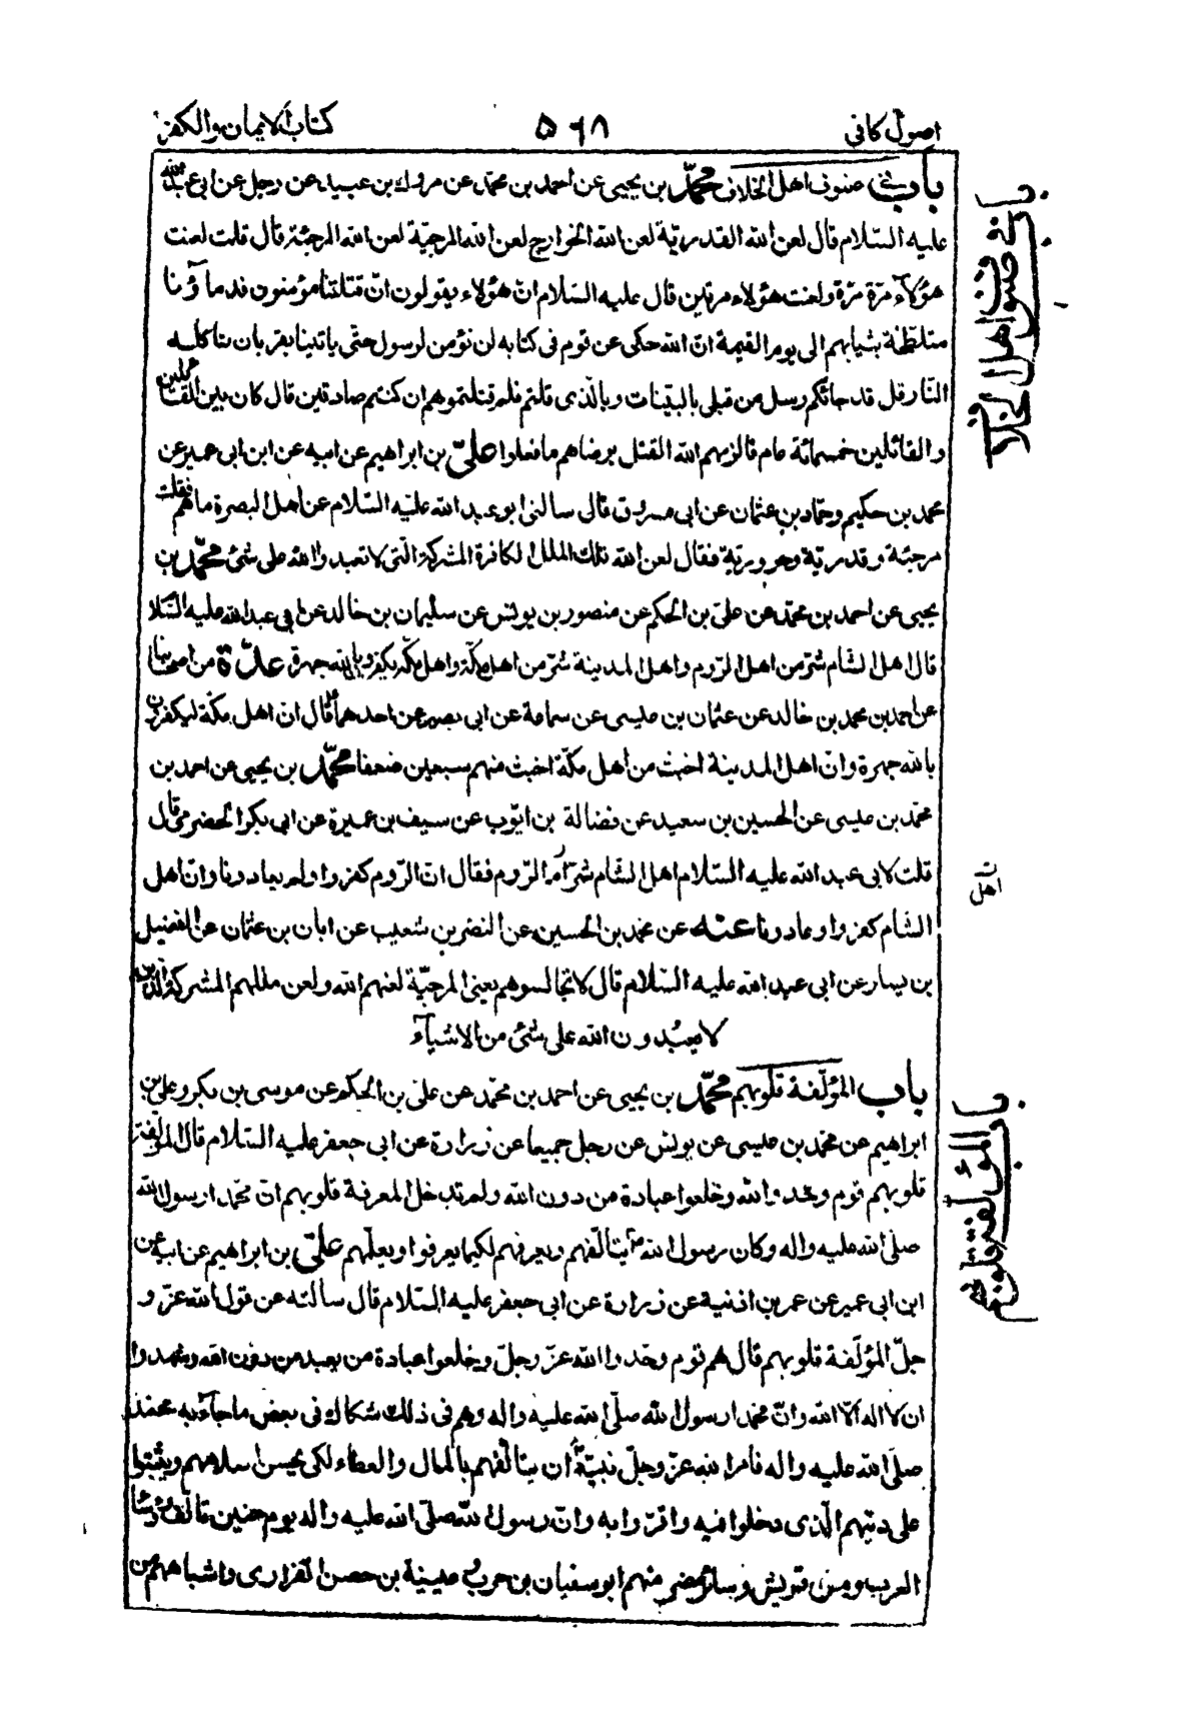 اصول كافى
۵۶۸
كتاب الايمان والكفر
باب فى صنوف اهل الخلاف محمّد بن يحيى عن احمد بن محمّد عن مروك بن عبيد عن رجل عن ابى عبد الله
عليه السّلام قال لعن الله القدريّة لعن الله الخوارج لعن الله المرجئة لعن الله المرجئة قال قلت لعنت
هؤلآء مرّة مرّة ولعنت هؤلاء مرتين قال عليه السّلام انّ هؤلاء يقولون انّ قتلتنا مؤمنون فدمآؤنا
متلطّخة بثيابهم الى يوم القيمة انّ الله حكى عن قوم فى كتابه لن نؤمن لرسول حتّى ياتينا بقربان تاكله
النّار قل قد جائكم رسل من قبلى بالبيّنات وبالّذى قلتم فلم قتلتموهم ان كنتم صادقين قال كان بين القاتلين
والقائلين خمسمائة عام فالزمهم الله القتل برضاهم ما فعلوا علىّ بن ابراهيم عن ابيه عن ابن ابى عمير عن
محمد بن حكيم وحمّاد بن عثمان عن ابى مسروق قال سالنى ابو عبد الله عليه السّلام عن اهل البصرة ما هم فقلت
مرجئة وقدريّة وحروريّة فقال لعن الله تلك الملل الكافرة المشركة الّتى لا تعبد والله على شئ محمّد بن
يحيى عن احمد بن محمّد عن علىّ بن الحكم عن منصور بن يونس عن سليمان بن خالد عن ابى عبد الله عليه السّلا
قال اهل الشام شرّ من اهل الرّوم واهل المدينة شرّ من اهل مكّة واهل مكّة يكفرو بالله جهرة عدّة من اصحابنا
عن احمد بن محمد بن خالد عن عثمان بن عيسى عن سماعة عن ابى بصير عن احدهما قال ان اهل مكّة ليكفرون
بالله جهرة وانّ اهل المدينة اخبث من أهل مكّة اخبث منهم سبعين ضعفا محمّد بن يحيى عن احمد بن
محمّد بن عيسى عن الحسين بن سعيد عن فضالة بن ايّوب عن سيف بن عميرة عن ابى بكر الحضرمى قال
قلت لابى عبد الله عليه السّلام اهل الشام شرّ أم الرّوم فقال انّ الرّوم كفروا ولم يعادونا وانّ اهل
الشام كفروا وعادونا عنه عن محمد بن الحسين عن النضر بن شعيب عن ابان بن عثمان عن الفضيل
بن يسار عن ابى عبد الله عليه السّلام قال لا تجالسوهم يعنى المرجئة لعنهم الله ولعن مللهم المشركة الّذين
لا يعبدون الله على شئ من الاشيآء
باب المؤلّفة قلوبهم محمّد بن يحيى عن احمد بن محمّد عن علىّ بن الحكم عن موسى بن بكر وعلىّ بن
ابراهيم عن محمّد بن عيسى عن يونس عن رجل جميعا عن زرارة عن ابى جعفر عليه السّلام قال المؤلفة
قلوبهم قوم وحدوا الله وخلعوا عبادة من دون الله ولم تدخل المعرفة قلوبهم انّ محمّدا رسول الله
صلّى الله عليه واله وكان رسول الله يتالّفهم ويعرفهم لكيما يعرفوا ويعلّمهم علىّ بن ابراهيم عن ابيه عن
ابن ابى عمير عن عمر بن اذينة عن زرارة عن ابى جعفر عليه السّلام قال سالته عن قول الله عزّ و
جلّ المؤلّفة قلوبهم قال هم قوم وحّدوا الله عزّ وجلّ وخلعوا عبادة من يعبد من دون الله وشهدوا
ان لا اله الّا الله وانّ محمّدا رسول الله صلّى الله عليه واله وهم فى ذلك شكاك فى بعض ما جآء به محمّد
صلّى الله عليه واله فامر الله عزّ وجلّ نبيّه أن يتالّفهم بالمال والعطاء لكى يحسن اسلامهم ويثبتوا
على دينهم الّذى دخلوا فيه واقرّوا به وانّ رسول الله صلّى الله عليه واله يوم حنين تالّف رؤسا
العرب ومن قريش وسائر مضر منهم ابو سفيان بن حرب وعيينة بن حصن الفزارى واشباههم من
باب فى صنوف اهل الخلاف
اهل
باب المؤلفة قلوبهم